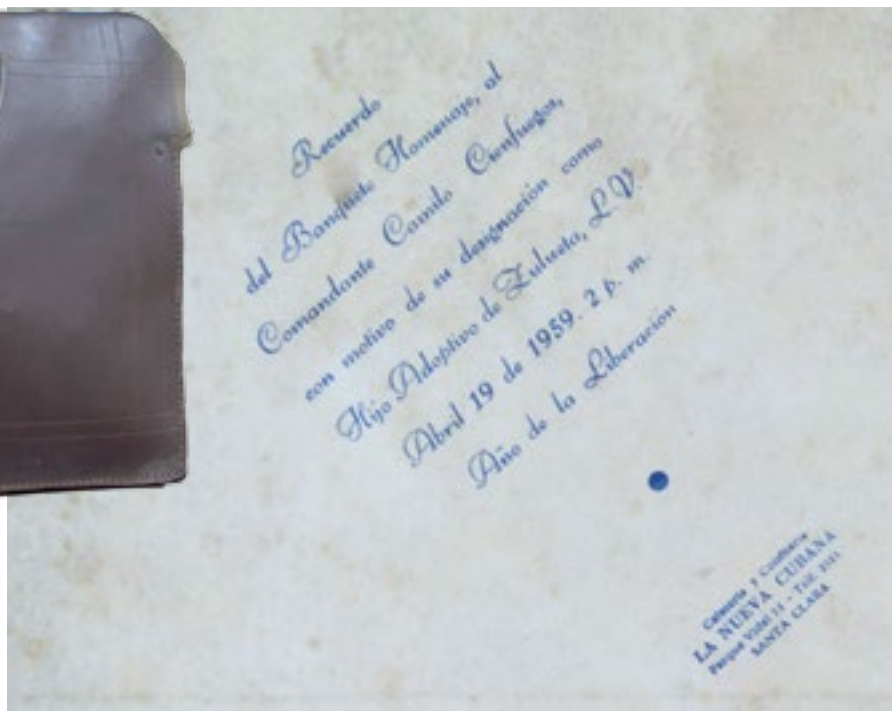 Recuerdo
del Banquete Homenaje, al
Comandante Camilo Cienfuegos,
con motivo de su designación como
Hijo Adoptivo de Zulueta, L.V.
Abril 19 de 1959. 2 p. m.
Año de la Liberación
Cafetería y Confitería
LA NUEVA CUBANA
Parque Vidal - Telf.
SANTA CLARA